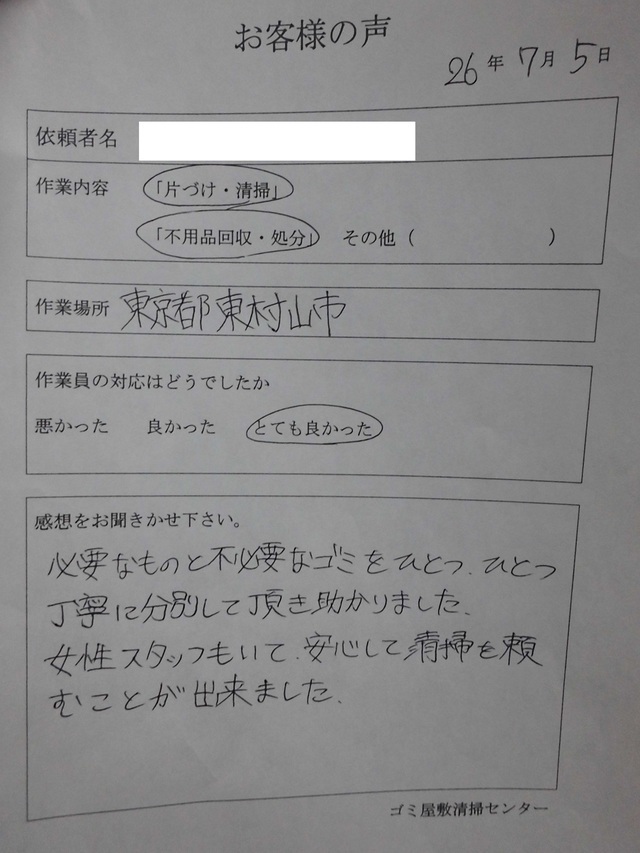 お客様の声
26年7月5日
依頼者名
作業内容 「片づけ・清掃」
「不用品回収・処分」 その他（ ）
作業場所 東京都東村山市
作業員の対応はどうでしたか
悪かった 良かった とても良かった
感想をお聞きかせ下さい。
必要なものと不必要なゴミをひとつ、ひとつ
丁寧に分別して頂き助かりました、
女性スタッフもいて、安心して清掃を頼
むことが出来ました、
ゴミ屋敷清掃センター